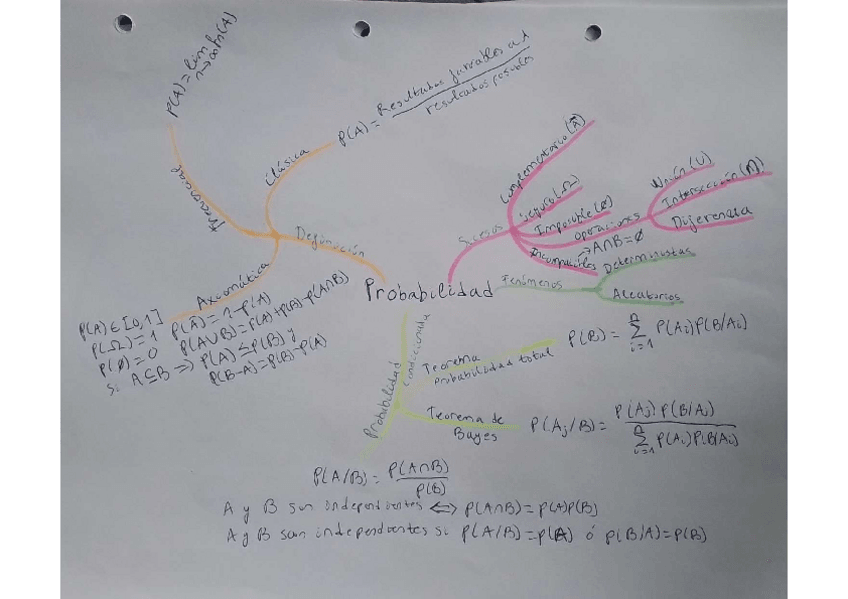 Probabilidad
Definición
Frecuencial
P(A) = lim fn(A)
n→∞
Clásica
P(A) = Resultados favorables a A / resultados posibles
Axiomática
P(A) ∈ [0,1]
P(Ω) = 1
P(∅) = 0
P(Ā) = 1 - P(A)
P(A∪B) = P(A) + P(B) - P(A∩B)
Si A⊆B ⇒ P(A) ≤ P(B) y
P(B-A) = P(B) - P(A)
Sucesos
Complementario (Ā)
Seguro (Ω)
Imposible (∅)
Operaciones
Unión (U)
Intersección (∩)
Diferencia
Incompatibles → A∩B = ∅
Fenómenos
Deterministas
Aleatorios
Probabilidad condicionada
Teorema
Probabilidad total
P(B) = ∑ i=1 n P(Ai) P(B/Ai)
Teorema de
Bayes
P(Aj/B) = P(Aj) P(B/Aj) / ∑ i=1 n P(Ai) P(B/Ai)
P(A/B) = P(A∩B) / P(B)
A y B son independientes ⇔ P(A∩B) = P(A)P(B)
A y B son independientes si P(A/B) = P(A) ó P(B/A) = P(B)